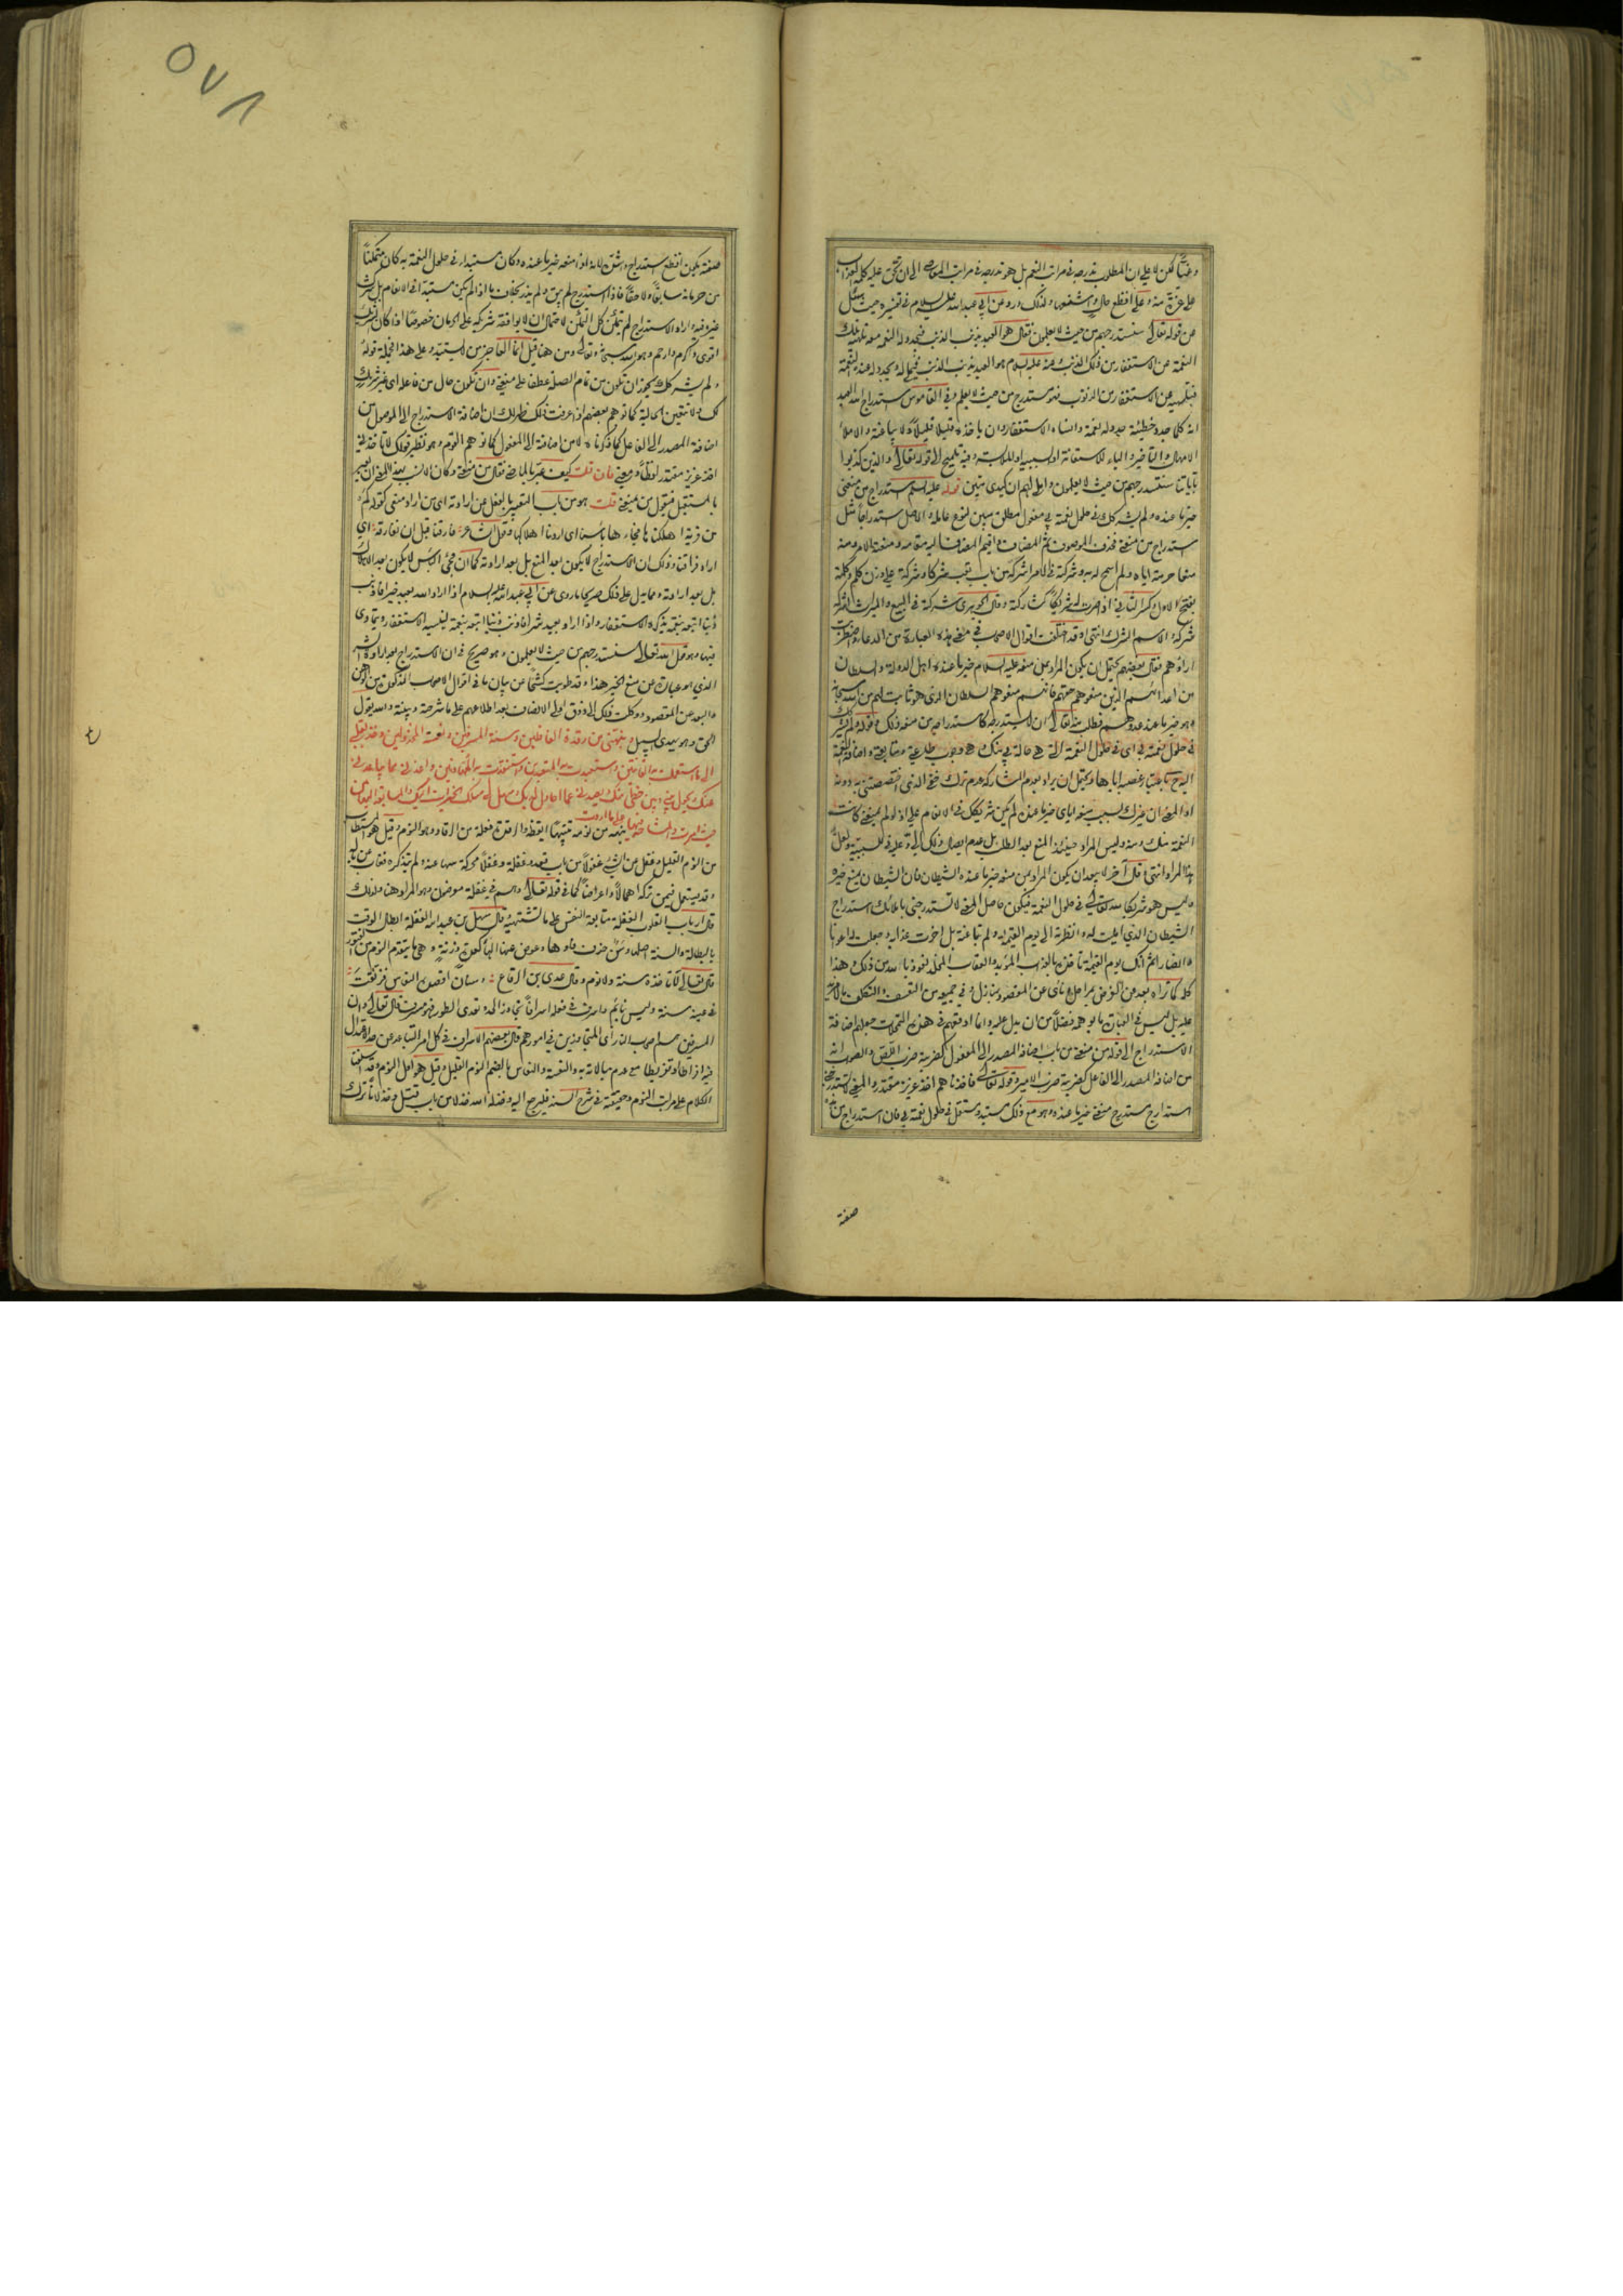 وغبيا لكن لا على ان المطلوب تدرجه في مراتب النعم بل هو تدرجه في مراتب المعاصي الى ان يحق عليه كلمة العذاب
على غرة منه وعلى افظع حال واشنعها ولذلك ورد عن ابي عبدالله عليه السلام في تفسيره حيث سئل
عن قوله تعالى سنستدرجهم من حيث لا يعلمون فقال هو العبد يذنب الذنب فتجدد له النعمة معه تلهيه تلك
النعمة عن الاستغفار من ذلك الذنب وعنه عليه السلام هو العبد يذنب الذنب فيملى له ويجدد له عنده النعمة
فتلهيه عن الاستغفار من الذنوب فهو مستدرج من حيث لا يعلم وفي القاموس استدراج الله العبد
انه كلما جدد خطيئة جدد له نعمة وانساه الاستغفار وان ياخذه قليلا قليلا ولا يباغته والاملاء
الامهال والتاخير والباء للاستعانة او السببية او الملابسة وفيه تلميح الى قوله تعالى والذين كذبوا
باياتنا سنستدرجهم من حيث لا يعلمون واملي لهم ان كيدي متين قوله عليه السلام استدراج من منعني
خير ما عنده ولم يشركك في حلول نعمة بي مفعول مطلق مبين لنوع عامله والاصل استدراجا مثل
استدراج من منعني فحذف الموصوف ثم المضاف واقيم المضاف اليه مقامه ومنعه الامر ومنه
منعا حرمه اياه ولم يسمح له به وشركته في الامر اشركه من باب تعب شركا وشركة على وزن كلم وكلمة
بفتح الاول وكسر الثاني اذا صرت له شريكا كشاركته وقال الجوهري شركته في البيع والميراث اشركه
شركة والاسم الشرك انتهى وقد اختلفت اقوال الاصحاب في معنى هذه العبارة من الدعاء واضطربت
اراؤهم فقال بعضهم يحتمل ان يكون المراد بمن منعه عليه السلام خير ما عنده اهل الدولة والسلطان
من اعدائهم الذين منعوهم حقهم فانهم منعوهم السلطان الذي هو ثابت لهم من الله سبحانه
وهو خير ما عند عدوهم فطلب منه تعالى ان لا يستدرجه كاستدراجه من منعه ذلك وقوله ولم يشركك
في حلول نعمة بي اي في حلول النعمة التي هي حالة بي منك وهي وجوب طاعته ومتابعته واضافة النعمة
اليه صح باعتبار غصبه اياها ويحتمل ان يراد بعدم المشاركة عدم ترك حقي الذي اختصصتني به دونه
او المعنى ان غيرك بسبب منعه اياي خير ما عنده لم يكن شريكك في الانعام علي اذ لو لم يمنعني كانت
النعمة منك ومنه وليس المراد حينئذ المنع بعد الطلب بل عدم ايصال ذلك الي وعلى في للسببية ولعل
هذا المراد انتهى وقال آخر لا يبعد ان يكون المراد بمن منعه خير ما عنده الشيطان فان الشيطان يمنع خيره
وليس هو شريكا لله تعالى في حلول النعمة فيكون حاصل المعنى لا تستدرجني باملائك استدراج
الشيطان الذي امليت له وانظرته الى يوم القيمة ولم تباغته بل اخرت عذابه وجعلت له اعوانا
وانصارا ثم انك يوم القيمة تأخذه بالعذاب المؤبد والعقاب المخلد نعوذ بالله من ذلك وهذا
كله كما تراه بعيد عن الغرض بمراحل وناي عن المقصود بمنازل وفي جميعه من التعسف والتكلف ما لا مزيد
عليه بل ليس في العبارة ما يوهمه فضلا من ان يدل عليه وانما اوقعهم في هذه التمحلات جعلهم اضافة
الاستدراج الى قوله من منعني من باب اضافة المصدر الى المفعول كضربته ضرب اللص والصواب انه
من اضافة المصدر الى الفاعل كضربته ضرب الامير وقوله تعالى فاخذناهم اخذ عزيز مقتدر والمعنى لا تستدرجني
استدراج مستدرج منعني خير ما عنده وهو مع ذلك مستبد ومستقل في حلول نعمته بي فان استدراج من هذه
صفته
صفته يكون افظع استدراج واشق لانه اذا منعه خير ما عنده وكان مستبدا في حلول النعمة به كان متمكنا
من حرمانه سابقا ولاحقا فاذا استدرج لم يبق ولم يذر بخلاف ما اذا لم يكن مستبدا في الانعام بل شركه
غيره فيه واراد الاستدراج لم يتمكن كل التمكن لاحتمال ان لا يوافقه شريكه على الحرمان خصوصا اذا كان الشريك
اقوى واكرم وارحم وهو الله سبحانه وتعالى ومن هنا قيل انما العاجز من لا يستبد وعلى هذا فجملة قوله
ولم يشركك يجوز ان تكون من تمام الصلة عطفا على منعني وان تكون حال من فاعله اي غير شريك
لك ولا تتعين الحالية كما توهم بعضهم اذا عرفت ذلك ظهر لك ان اضافة الاستدراج الى الموصول من
اضافة المصدر الى الفاعل كما ذكرناه لا من اضافته الى المفعول كما توهمه القوم وهو نظير قولك لا تاخذني
اخذ عزيز مقتدر لفظا ومعنى فان قلت كيف عبر بالماضي فقال من منعني وكان الانسب بهذا المعنى ان يعبر
بالمستقبل فيقول من يمنعني قلت هو من باب التعبير بالفعل عن ارادته اي من اراد منعي كقوله وكم
من قرية اهلكناها فجاءها باسنا اي اردنا اهلاكها وقول الشاعر فارقنا قبل ان نفارقه اي
اراد فراقنا وذلك ان الاستدراج لا يكون بعد المنع بل بعد ارادته كما ان مجئ الباس لا يكون بعد الاهلاك
بل بعد ارادته ومما يدل على ذلك صريحا ما روي عن ابي عبدالله عليه السلام اذا اراد الله بعبد خيرا فاذنب
ذنبا اتبعه بنقمة يذكره الاستغفار واذا اراد بعبد شرا فاذنب ذنبا اتبعه بنعمة لينسيه الاستغفار ويتمادى
فيها وهو قول الله تعالى سنستدرجهم من حيث لا يعلمون وهو صريح في ان الاستدراج بعد ارادة الشر
الذي هو عبارة عن منع الخير هذا وقد طويت كشحا عن بيان ما في اقوال الاصحاب المذكورة من الوهن
والبعد عن المقصود ووكلت ذلك الى ذوق اولي الانصاف بعد اطلاعهم على ما شرحته وبينته والله يقول
الحق وهو يهدي السبيل ونبهني من رقدة الغافلين وسنة المسرفين ونعسة المخذولين وخذ بقلبي
الى ما استعملت به القانتين واستعبدت به المتعبدين واستنقذت به المتهاونين واعذني مما يباعدني
عنك ويحول بيني وبين حظي منك ويصدني عما احاول لديك وسهل لي مسلك الخيرات اليك والمسابقة اليها من
حيث امرت والمشاحة فيها على ما اردت نبهه من نومه تنبيها ايقظه والرقدة فعلة من الرقاد وهو النوم وقيل هو المستطاب
من النوم القليل وغفل عن الشيء غفولا من باب قعد وغفلة وغفلا محركة سها عنه ولم يتذكره فغاب عن باله
وقد يستعمل فيمن تركه اهمالا واعراضا كما في قوله تعالى وهم في غفلة معرضون وهو المراد هنا ولذلك
قال ارباب القلوب الغفلة متابعة النفس على ما تشتهيه وقال سهل بن عبدالله الغفلة ابطال الوقت
بالبطالة والسنة اصلها وسن حذف فاؤها وعوض عنها الهاء كعدة وزنة وهي ما يتقدم النوم من الفتور
قال تعالى لا تاخذه سنة ولا نوم وقال عدي بن الرقاع وسنان اقصده النعاس فرنقت
في عينه سنة وليس بنائم واسرف في فعله اسرافا تجاوز الحد وتعدى الطور فهو مسرف قال تعالى وان
المسرفين هم اصحاب النار اي المتجاوزين في امورهم قال بعضهم الاسراف في كل امر التباعد عن حد الاعتدال
فيه افراطا وتفريطا مع عدم مبالاة به والنعسة والنعاس بالضم النوم القليل وقيل هو اول النوم وقد استوفينا
الكلام على مراتب النوم وحقيقته في شرح السند فليرجع اليه وخذله الله خذلا من باب قتل وخذلانا ترك
٥٧٨